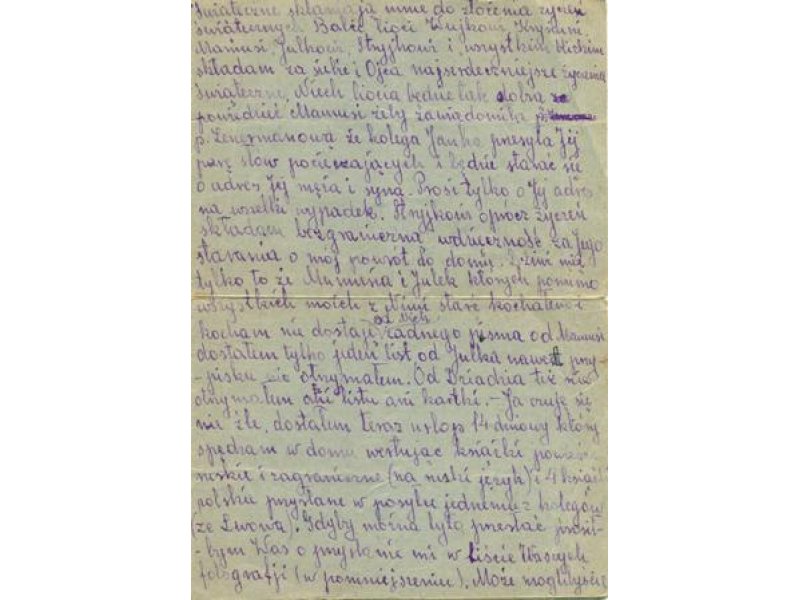 świąteczne skłaniają mnie do złożenia życzeń
świątecznych. Babci Cioci Wujkowi Krysieni
Mamusi Julkowi, Stryjkowi i wszystkim bliskim
składam za siebie i Ojca najserdeczniejsze życzenia
świąteczne. Niech Ciocia będzie tak dobra
powiedzieć Mamusi żeby zawiadomiła
p. że kolega Janka przesyła Jej
parę słów pocieszających i będzie starać się
o adres Jej męża i syna. Prosi tylko o Jej adres
na wszelki wypadek. Stryjkowi oprócz życzeń
składam bezgraniczną wdzięczność za Jego
starania o mój powrót do domu. Dziwi mię
tylko to że Mamusia i Julek których pomimo
wszystkich moich z Nimi starć kochałem i
kocham nie dostaję od Nich żadnego pisma od Mamusi
dostałem tylko jeden list od Julka nawet przy-
-pisku nie otrzymałem. Od Dziadzia też nie
otrzymałem ani listu ani kartki. – Ja czuję się
nie źle, dostałem teraz urlop 14 dniowy który
spędzam w domu wertując książki
i zagraniczne (na ruski język) i 4 książki
polskie przysłane w posyłce jednemu z kolegów
(ze Lwowa). Gdyby można było przesłać prosił-
-bym Was o przysłanie mi w liście Waszych
fotografji (w pomniejszeniu). Może moglibyście